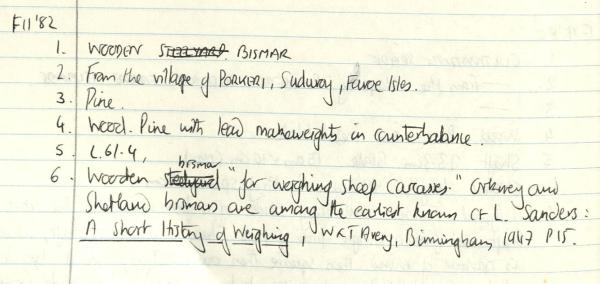 F11 '82
1. WOODEN STEELYARD BISMAR
2. From the village of PORKERI, Suduroy, Faroe Isles.
3. Pine.
4. Wood. Pine with lead makeweights in counterbalance.
5. L.61.4,
bismar
6. Wooden steelyard "for weighing sheep carcasses." Orkney and
Shetland bismars are among the earliest known cf L. Sanders:
A Short History of Weighing, W&T Avery, Birmingham, 1947 P15.